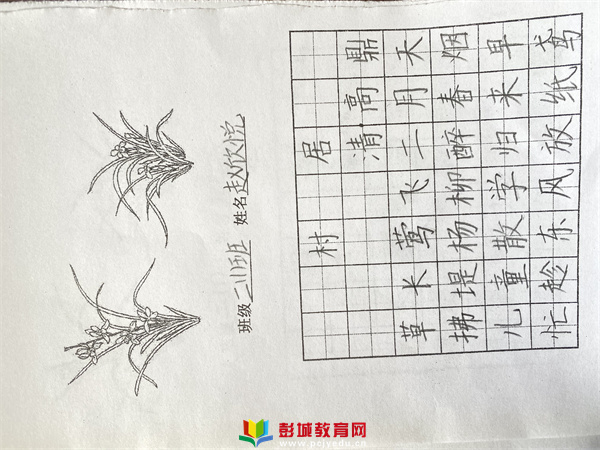 班级 二(1)班 姓名 赵欣悦
村居
清 高鼎
草长莺飞二月天
拂堤杨柳醉春烟
儿童散学归来早
忙趁东风放纸鸢
彭城教育网